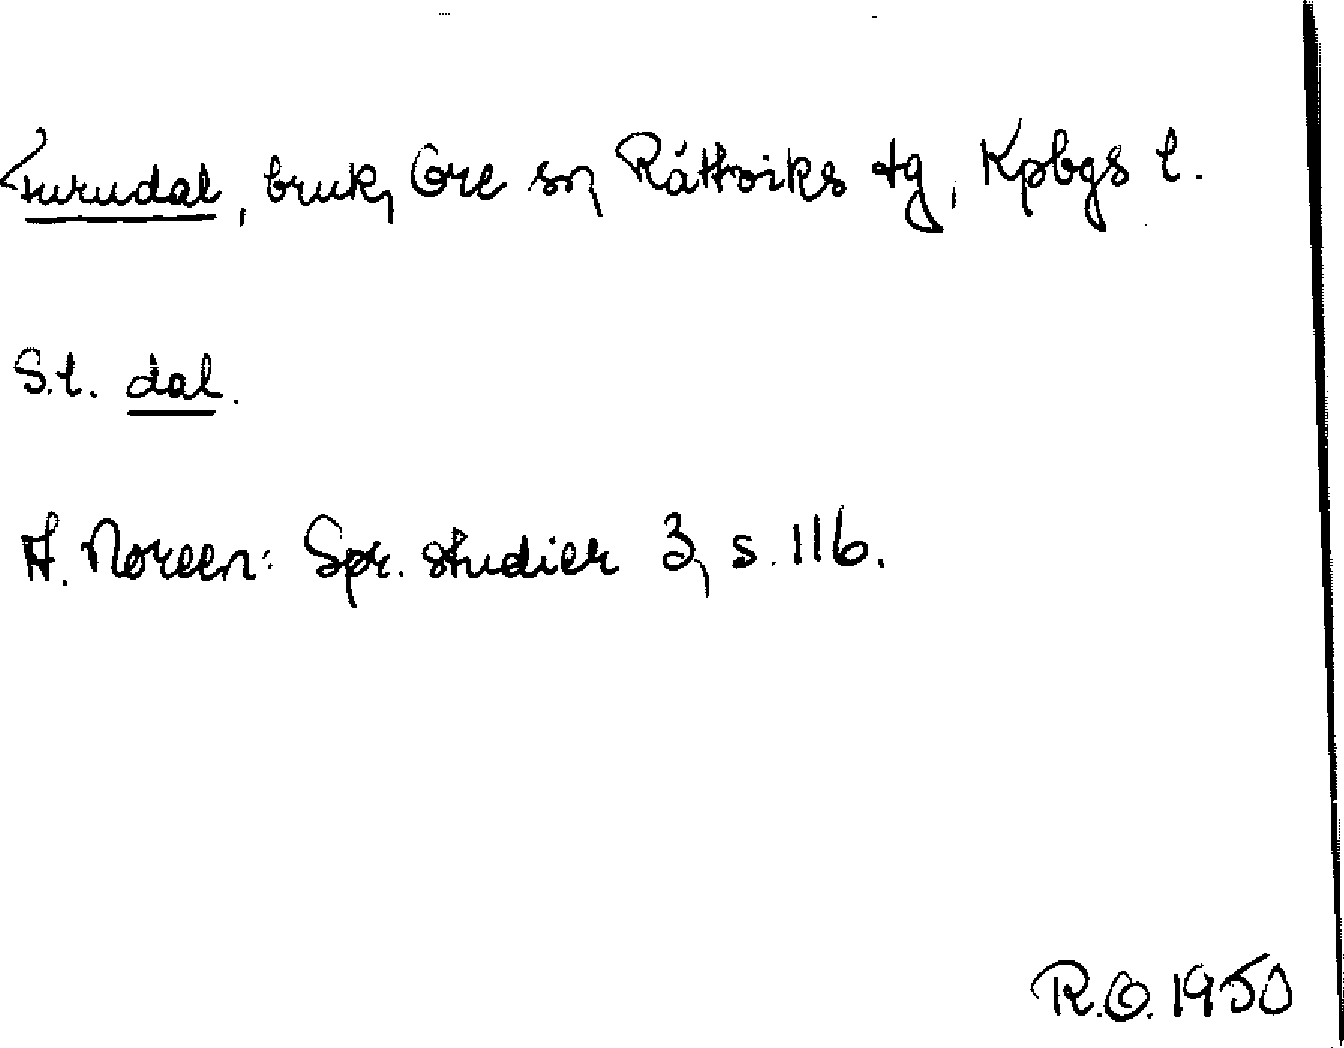 Furudal, bruk, Ore sn, Rättviks tg, Kpbgs l.
S.l. dal.
A. Noreen: Spr. studier 3, s. 116.
R.O. 1950